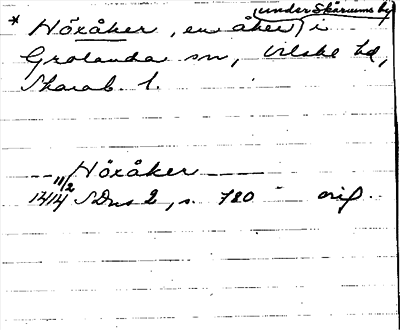 under Skärums by
* Höxåker, en åker i
Grolanda sn, Vilske hd,
Skarab. l.
--- Höxåker ---
11/2
1414 SDns 2, s. 720 orig.